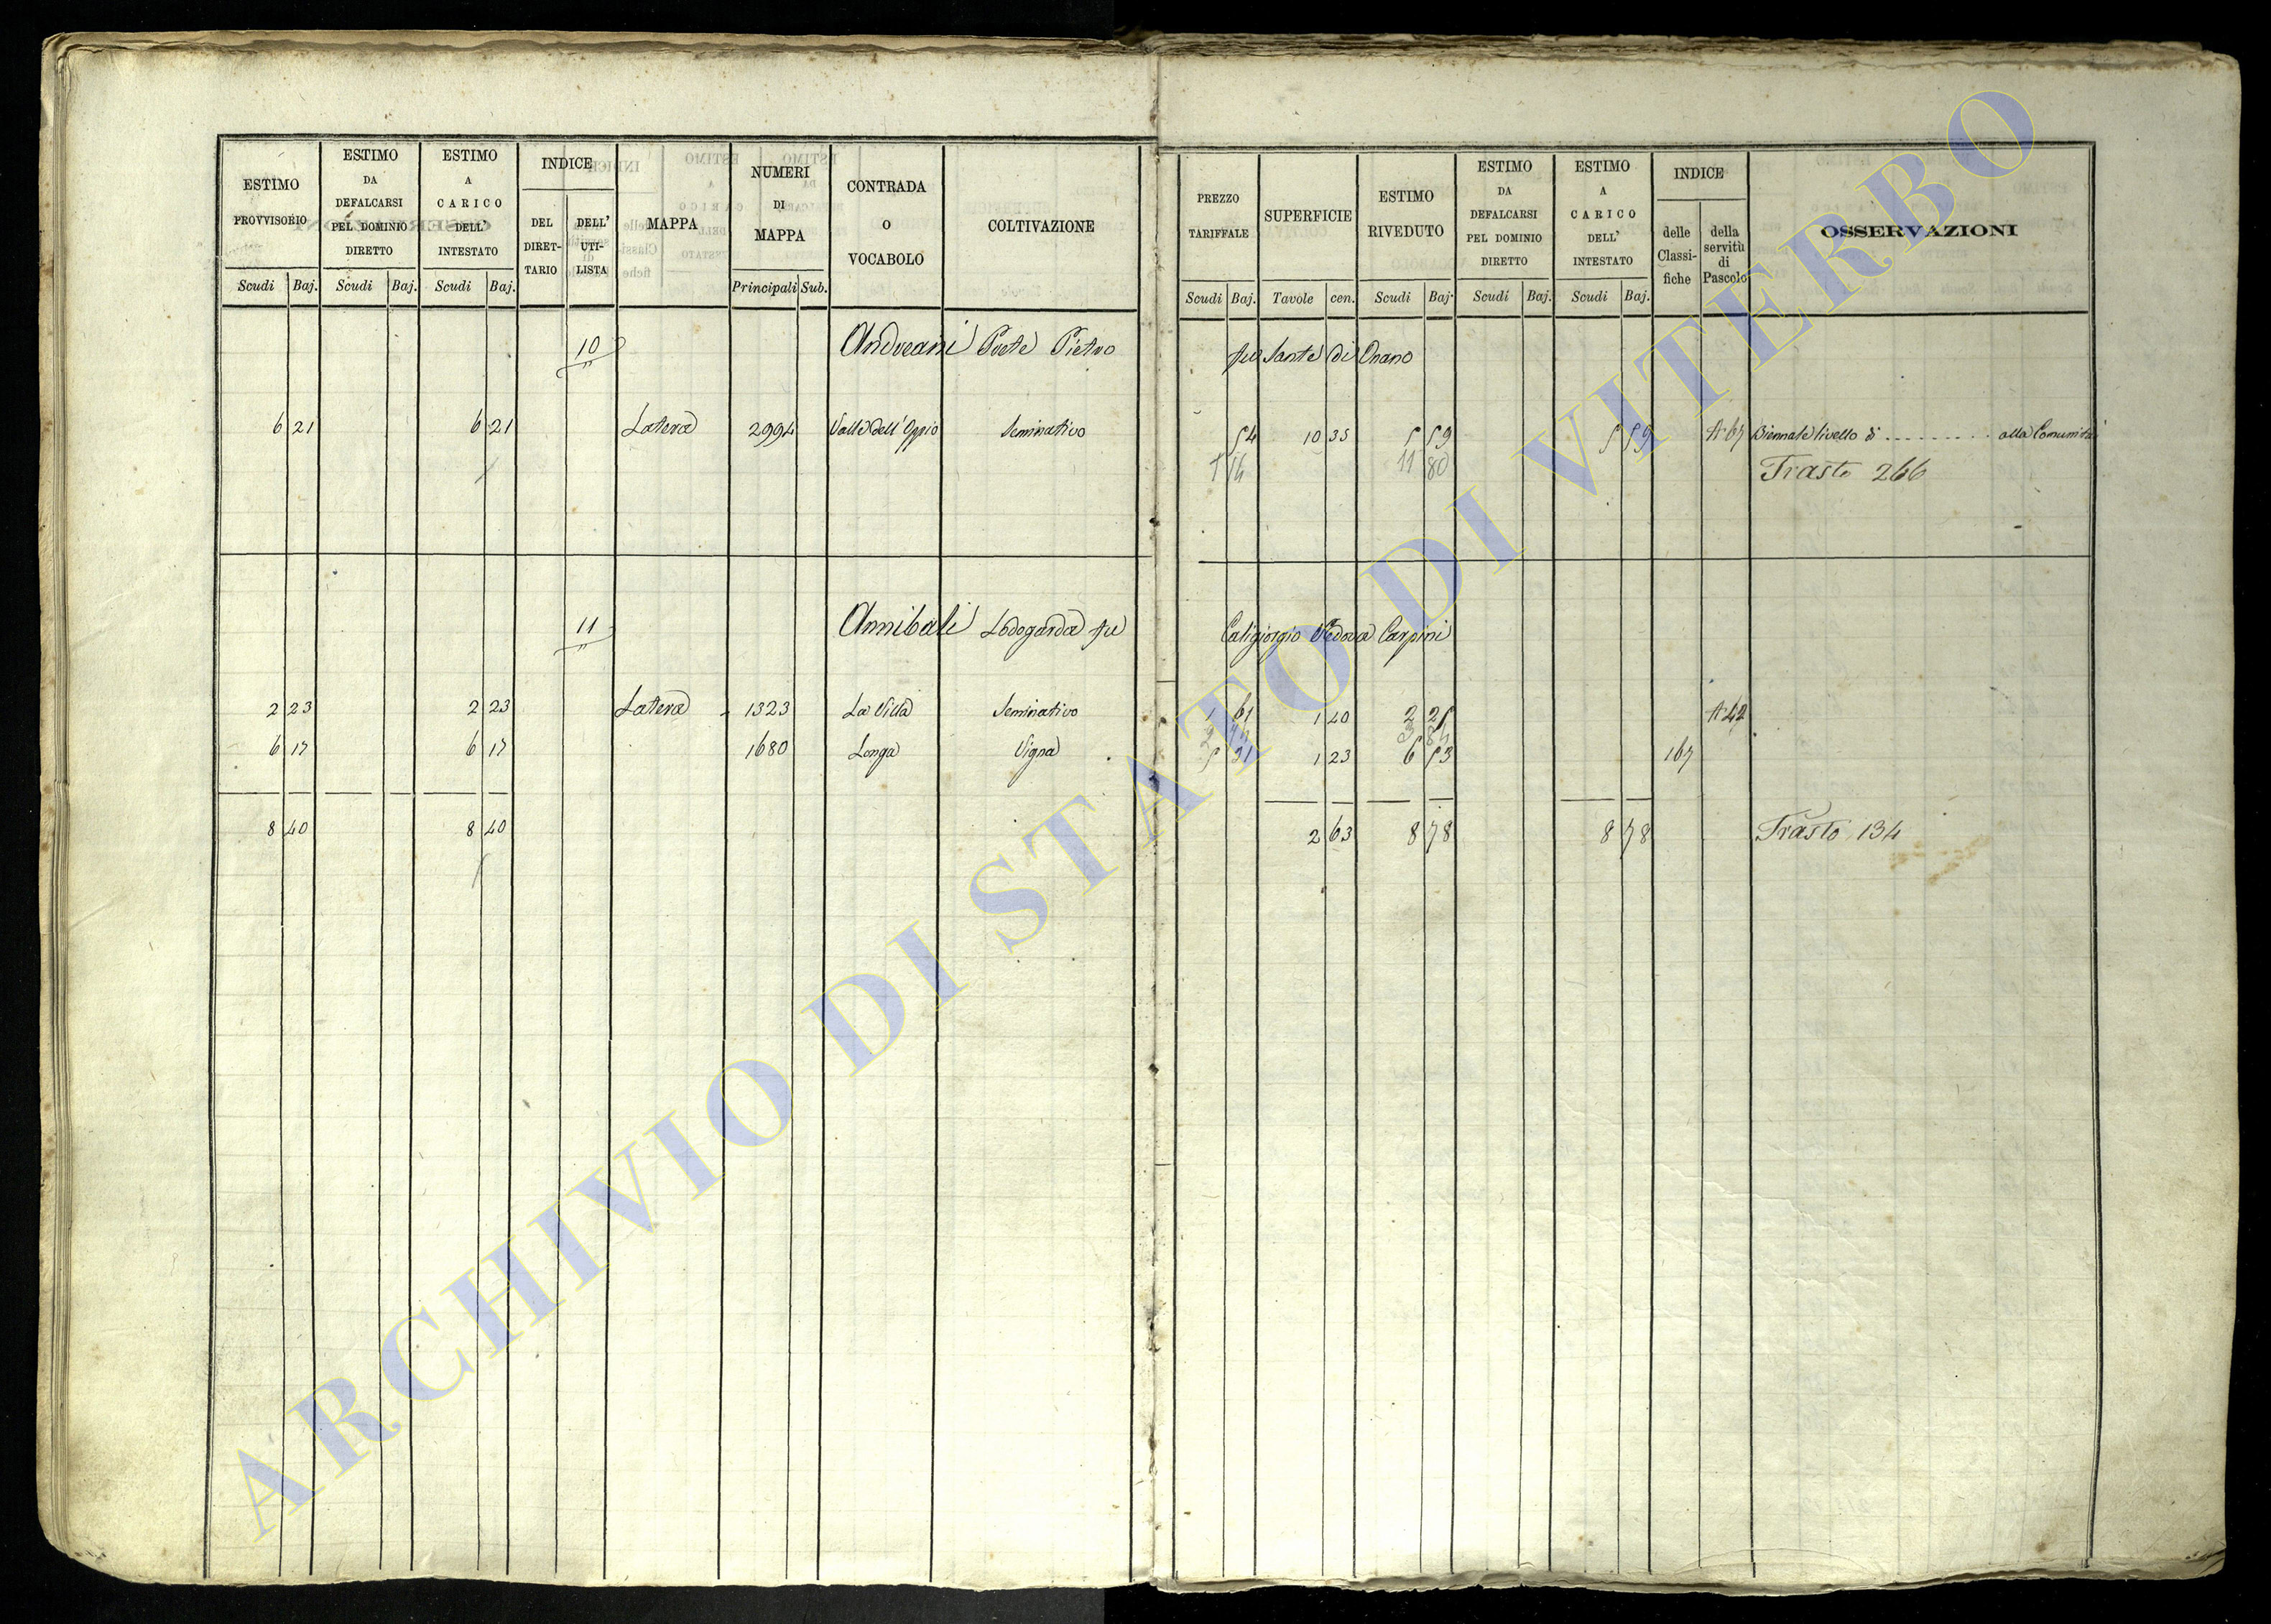 ESTIMO PROVVISORIO
Scudi Baj.
ESTIMO DA DEFALCARSI PEL DOMINIO DIRETTO
Scudi Baj.
ESTIMO A CARICO DELL' INTESTATO
Scudi Baj.
INDICE
DEL DIRET-TARIO
DELL' UTI-LISTA
MAPPA
NUMERI DI MAPPA
Principali Sub.
CONTRADA O VOCABOLO
COLTIVAZIONE
PREZZO TARIFFALE
Scudi Baj.
SUPERFICIE
Tavole cen.
ESTIMO RIVEDUTO
Scudi Baj.
ESTIMO DA DEFALCARSI PEL DOMINIO DIRETTO
Scudi Baj.
ESTIMO A CARICO DELL' INTESTATO
Scudi Baj.
INDICE
delle Classi-fiche
della servitù di Pascolo
OSSERVAZIONI
10 Andreani Prete Pietro fu Sante di Onano
6 21 6 21 Latera 2994 Valle dell' Oppio Seminativo 54 10 35 5 59 5 59 A 67 Biennale livello di .......... alla Comunità
11 80 Trasto 266
11 Annibali Lodogarda fu Caligiorgio Vedova Carpini
2 23 2 23 Latera 1323 La Villa Seminativo 1 61 1 40 2 25 A 42
6 17 6 17 1680 Longa Vigna 5 31 1 23 6 53 167
8 40 8 40 2 63 8 78 8 78 Trasto 134
ARCHIVIO DI STATO DI VITERBO